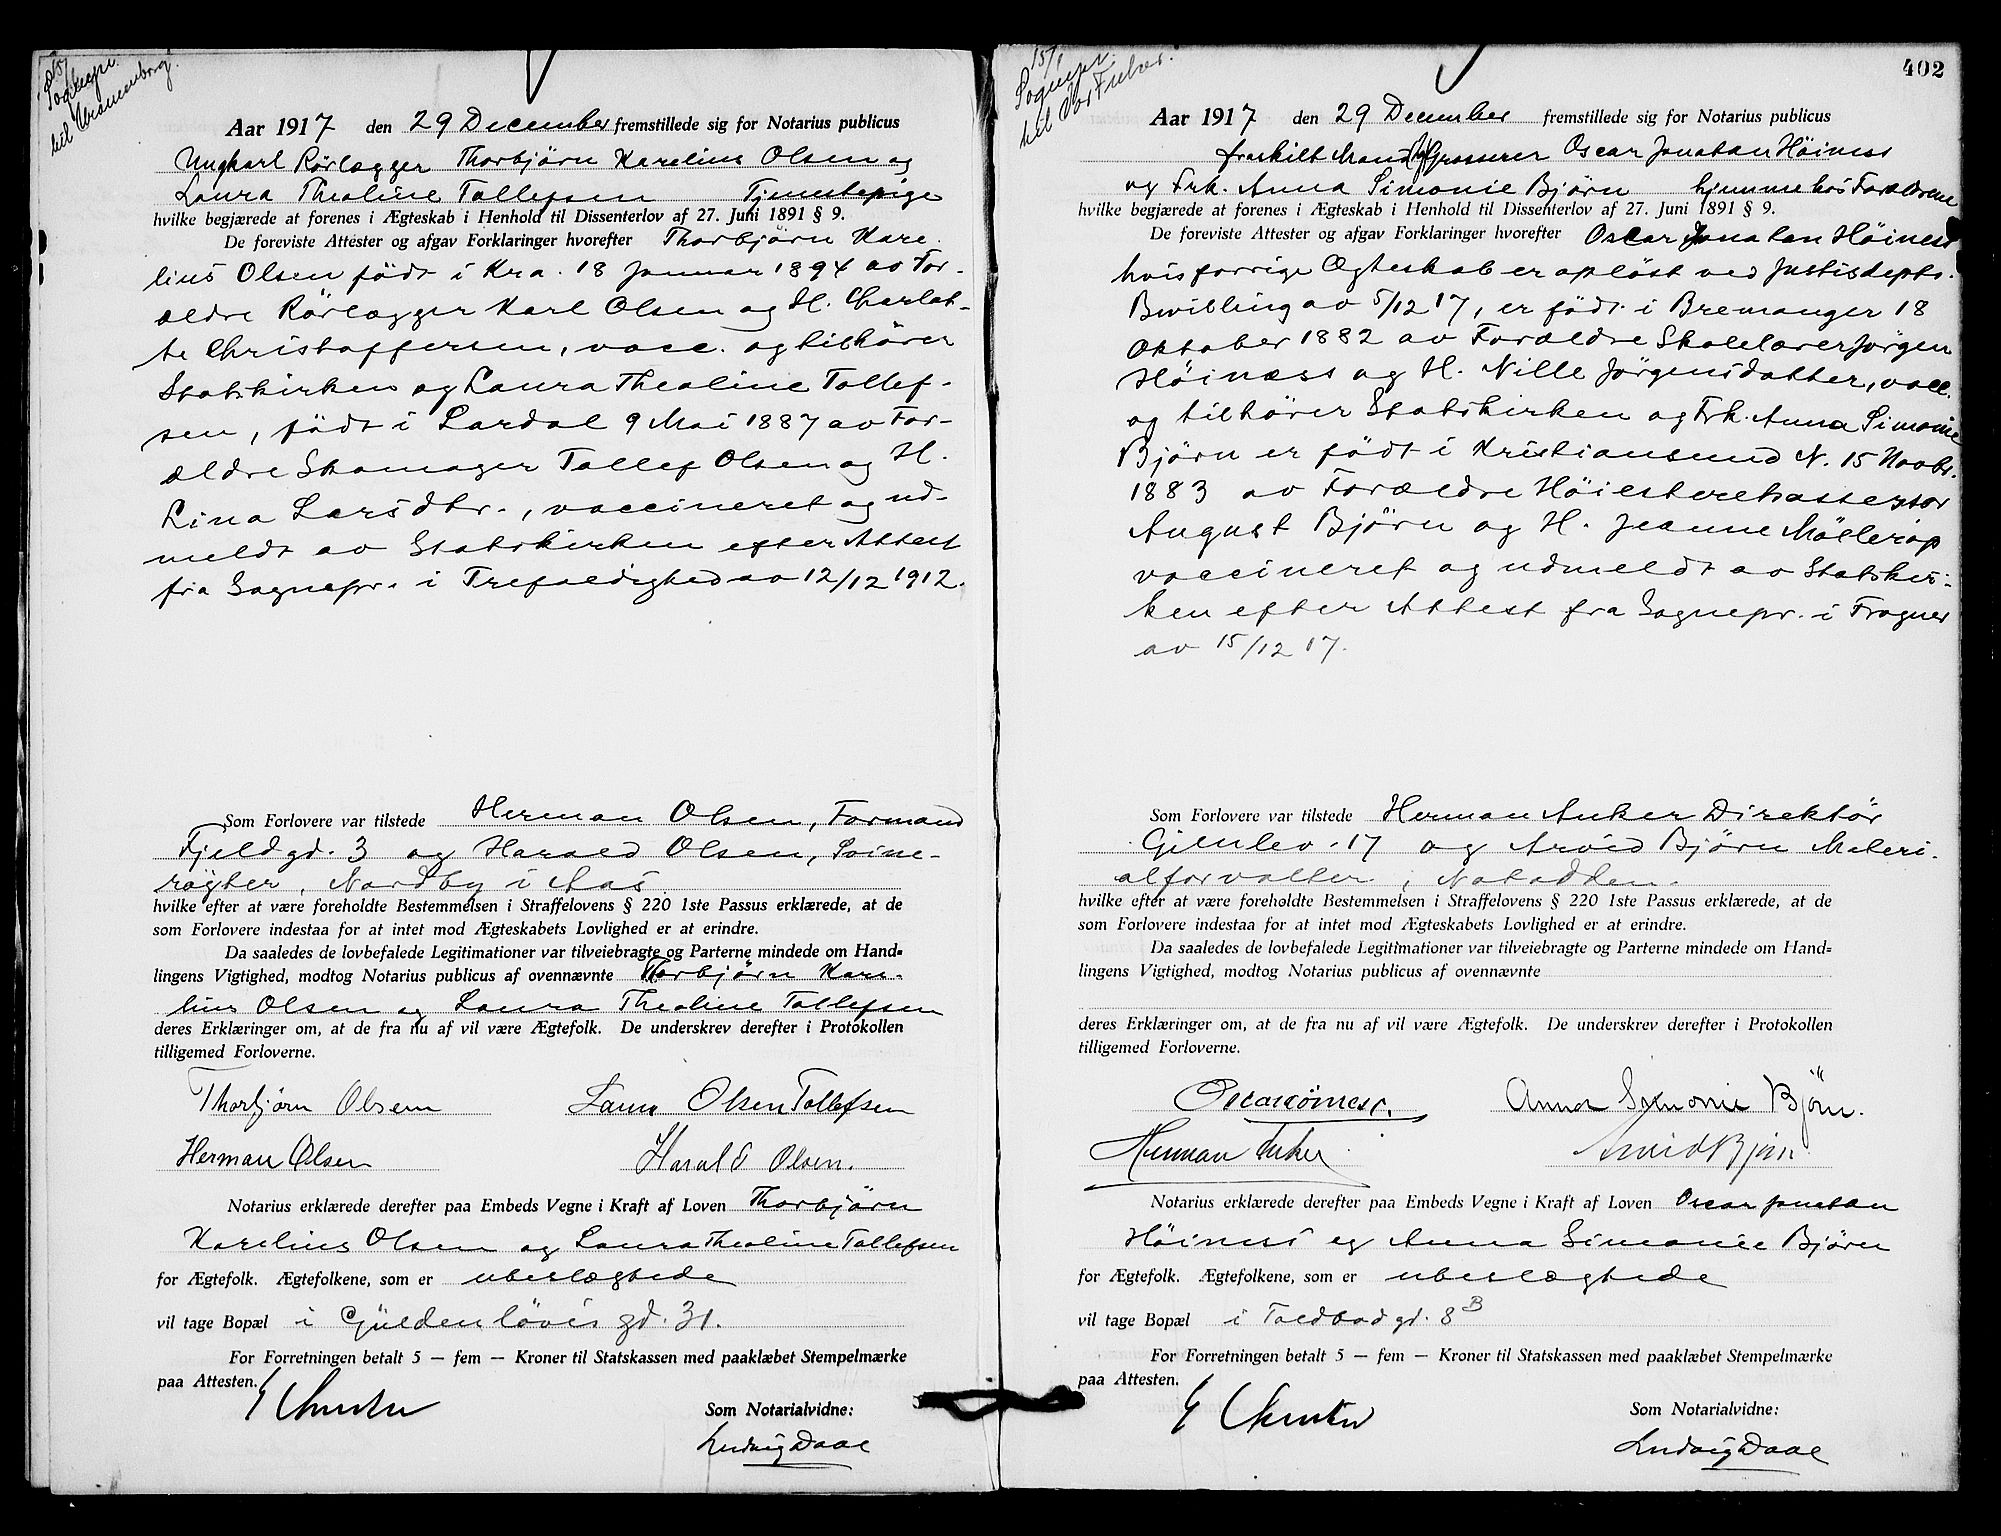 Sognepr.
til Uranienborg.
Aar 1917 den 29 December fremstillede sig for Notarius publicus
Ungkarl Rørlægger Thorbjørn Karelius Olsen og
Laura Thealine Tollefsen Tjenestepige
hvilke begjærede at forenes i Ægteskab i Henhold til Dissenterlov af 27. Juni 1891 § 9.
De foreviste Attester og afgav Forklaringer hvorefter Thorbjørn Kare-
lius Olsen født i Kra. 18 Januar 1894 av For-
ældre Rørlægger Karl Olsen og H. Charlot-
te Christoffersen, vacc. og tilhører
Statskirken og Laura Thealine Tollef-
sen, født i Lardal 9 Mai 1887 av For-
ældre Skomager Tollef Olsen og H.
Lina Larsdtr., vaccineret og ud-
meldt av Statskirken efter Attest
fra Sognepr. i Trefoldighed av 12/12 1912.
Som Forlovere var tilstede Herman Olsen, Formand
Fjeldgd. 3 og Harald Olsen, Svine-
røgter, Nordby i Aas
hvilke efter at være foreholdte Bestemmelsen i Straffelovens § 220 1ste Passus erklærede, at de
som Forlovere indestaa for at intet mod Ægteskabets Lovlighed er at erindre.
Da saaledes de lovbefalede Legitimationer var tilveiebragte og Parterne mindede om Hand-
lingens Vigtighed, modtog Notarius publicus af ovennævnte Thorbjørn Kare-
lius Olsen og Laura Thealine Tollefsen
deres Erklæringer om, at de fra nu af vil være Ægtefolk. De underskrev derefter i Protokollen
tilligemed Forloverne.
Thorbjørn Olsen Laura Olsen Tollefsen
Herman Olsen Harald Olsen.
Notarius erklærede derefter paa Embeds Vegne i Kraft af Loven Thorbjørn
Karelius Olsen og Laura Thealine Tollefsen
for Ægtefolk. Ægtefolkene, som er ubeslægtede
vil tage Bopæl i Gyldenløves gd. 31.
For Forretningen betalt 5 — fem — Kroner til Statskassen med paaklæbet Stempelmærke
paa Attesten.
Som Notarialvidne:
Ludvig Daae
402
15/1
Sognepr.
til Vor Frelser.
Aar 1917 den 29 December fremstillede sig for Notarius publicus
fraskilt Mand Grosserer Oscar Jonatan Höiness
og Frk. Anna Simonie Björn hjemme hos Forældrene
hvilke begjærede at forenes i Ægteskab i Henhold til Dissenterlov af 27. Juni 1891 § 9.
De foreviste Attester og afgav Forklaringer hvorefter Oscar Jonatan Höiness
hvis forrige Ægteskab er opløst ved Justisdepts.
Bevilling av 5/12 17, er født i Bremanger 18
Oktober 1882 av Forældre Skolelærer Jørgen
Höinæss og H. Nille Jörgensdatter, vacc.
og tilhører Statskirken og Frk. Anna Simonie
Björn er født i Kristiansund N. 15 Novbr.
1883 av Forældre Höiesteretsassessor
August Björn og H. Jeanne Möllerop
vaccineret og udmeldt av Statskir-
ken efter Attest fra Sognepr. i Frogner
av 15/12 17.
Som Forlovere var tilstede Herman Anker Direktör
17 og Arvid Björn Materi-
alforvalter, Notodden.
hvilke efter at være foreholdte Bestemmelsen i Straffelovens § 220 1ste Passus erklærede, at de
som Forlovere indestaa for at intet mod Ægteskabets Lovlighed er at erindre.
Da saaledes de lovbefalede Legitimationer var tilveiebragte og Parterne mindede om Hand-
lingens Vigtighed, modtog Notarius publicus af ovennævnte
deres Erklæringer om, at de fra nu af vil være Ægtefolk. De underskrev derefter i Protokollen
tilligemed Forloverne.
Anna Simonie Björn.
Herman Anker Arvid Björn
Notarius erklærede derefter paa Embeds Vegne i Kraft af Loven Oscar Jonatan
Höiness og Anna Simonie Björn
for Ægtefolk. Ægtefolkene, som er ubeslægtede
vil tage Bopæl i Toldbodgd. 8B
For Forretningen betalt 5 — fem — Kroner til Statskassen med paaklæbet Stempelmærke
paa Attesten.
Som Notarialvidne:
Ludvig Daae